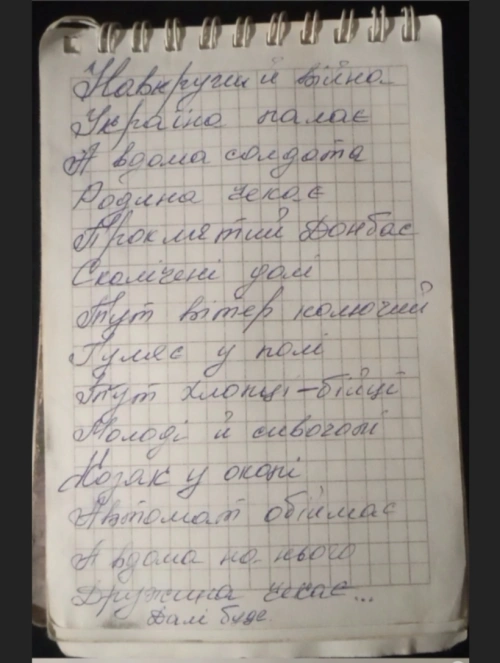 Навкруги й війна
Україна палає
А вдома солдата
Родина чекає
Проклятий Донбас
Скалічені долі
Тут вітер колючий
Гуляє у полі
Тут хлопці-бійці
Молоді й сивочолі
Козак у окопі
Автомат обіймає
А вдома на нього
Дружина чекає...
Далі буде